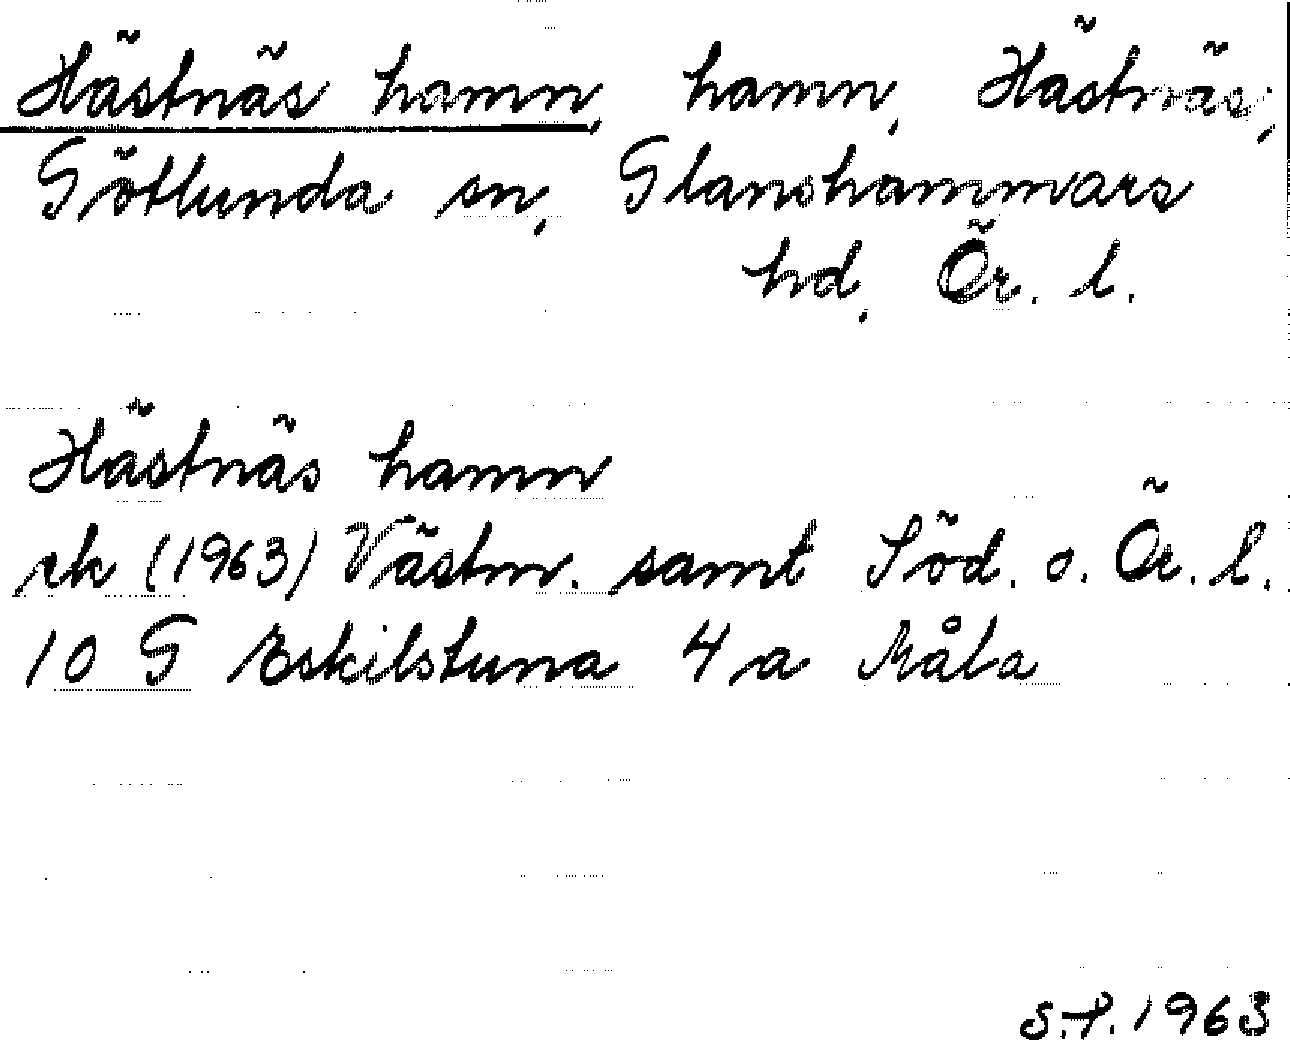 Hästnäs hamn, hamn, Hästnäs,
Götlunda sn, Glanshammars
hd, Ör. l.
Hästnäs hamn
rk (1963) Västm. samt Söd. o. Ör. l.
10 G Eskilstuna 4 a Råla
S.P. 1963